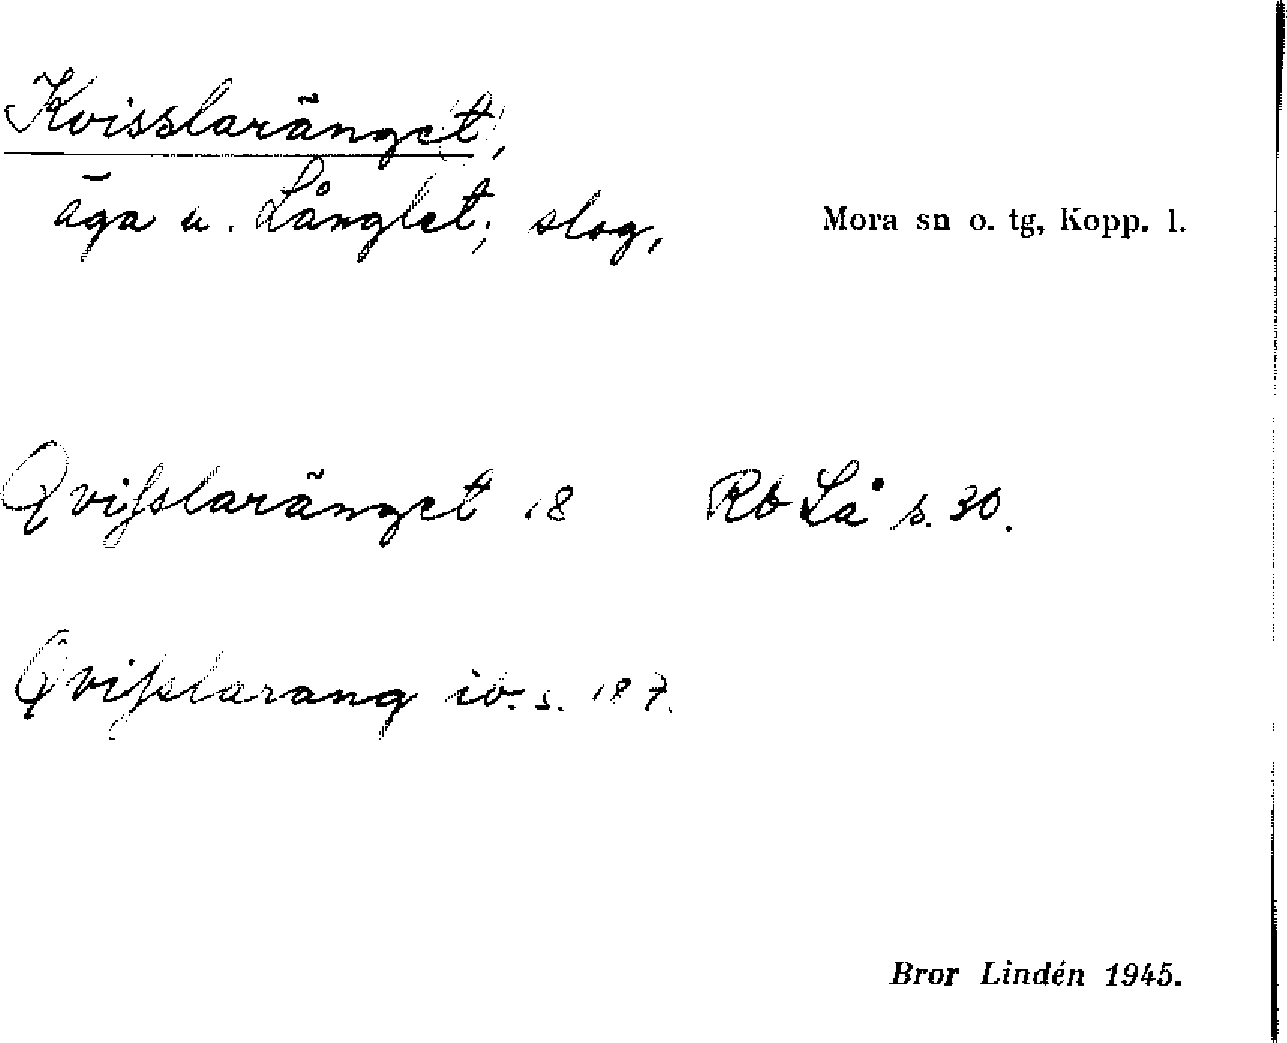 Kvisslaränge(t),
äga u. Långlet; slog,
Mora sn o. tg, Kopp. l.
Qvisslaränget 18 Rb Lå s. 30.
Qvisslarang ib. s. 187.
Bror Lindén 1945.